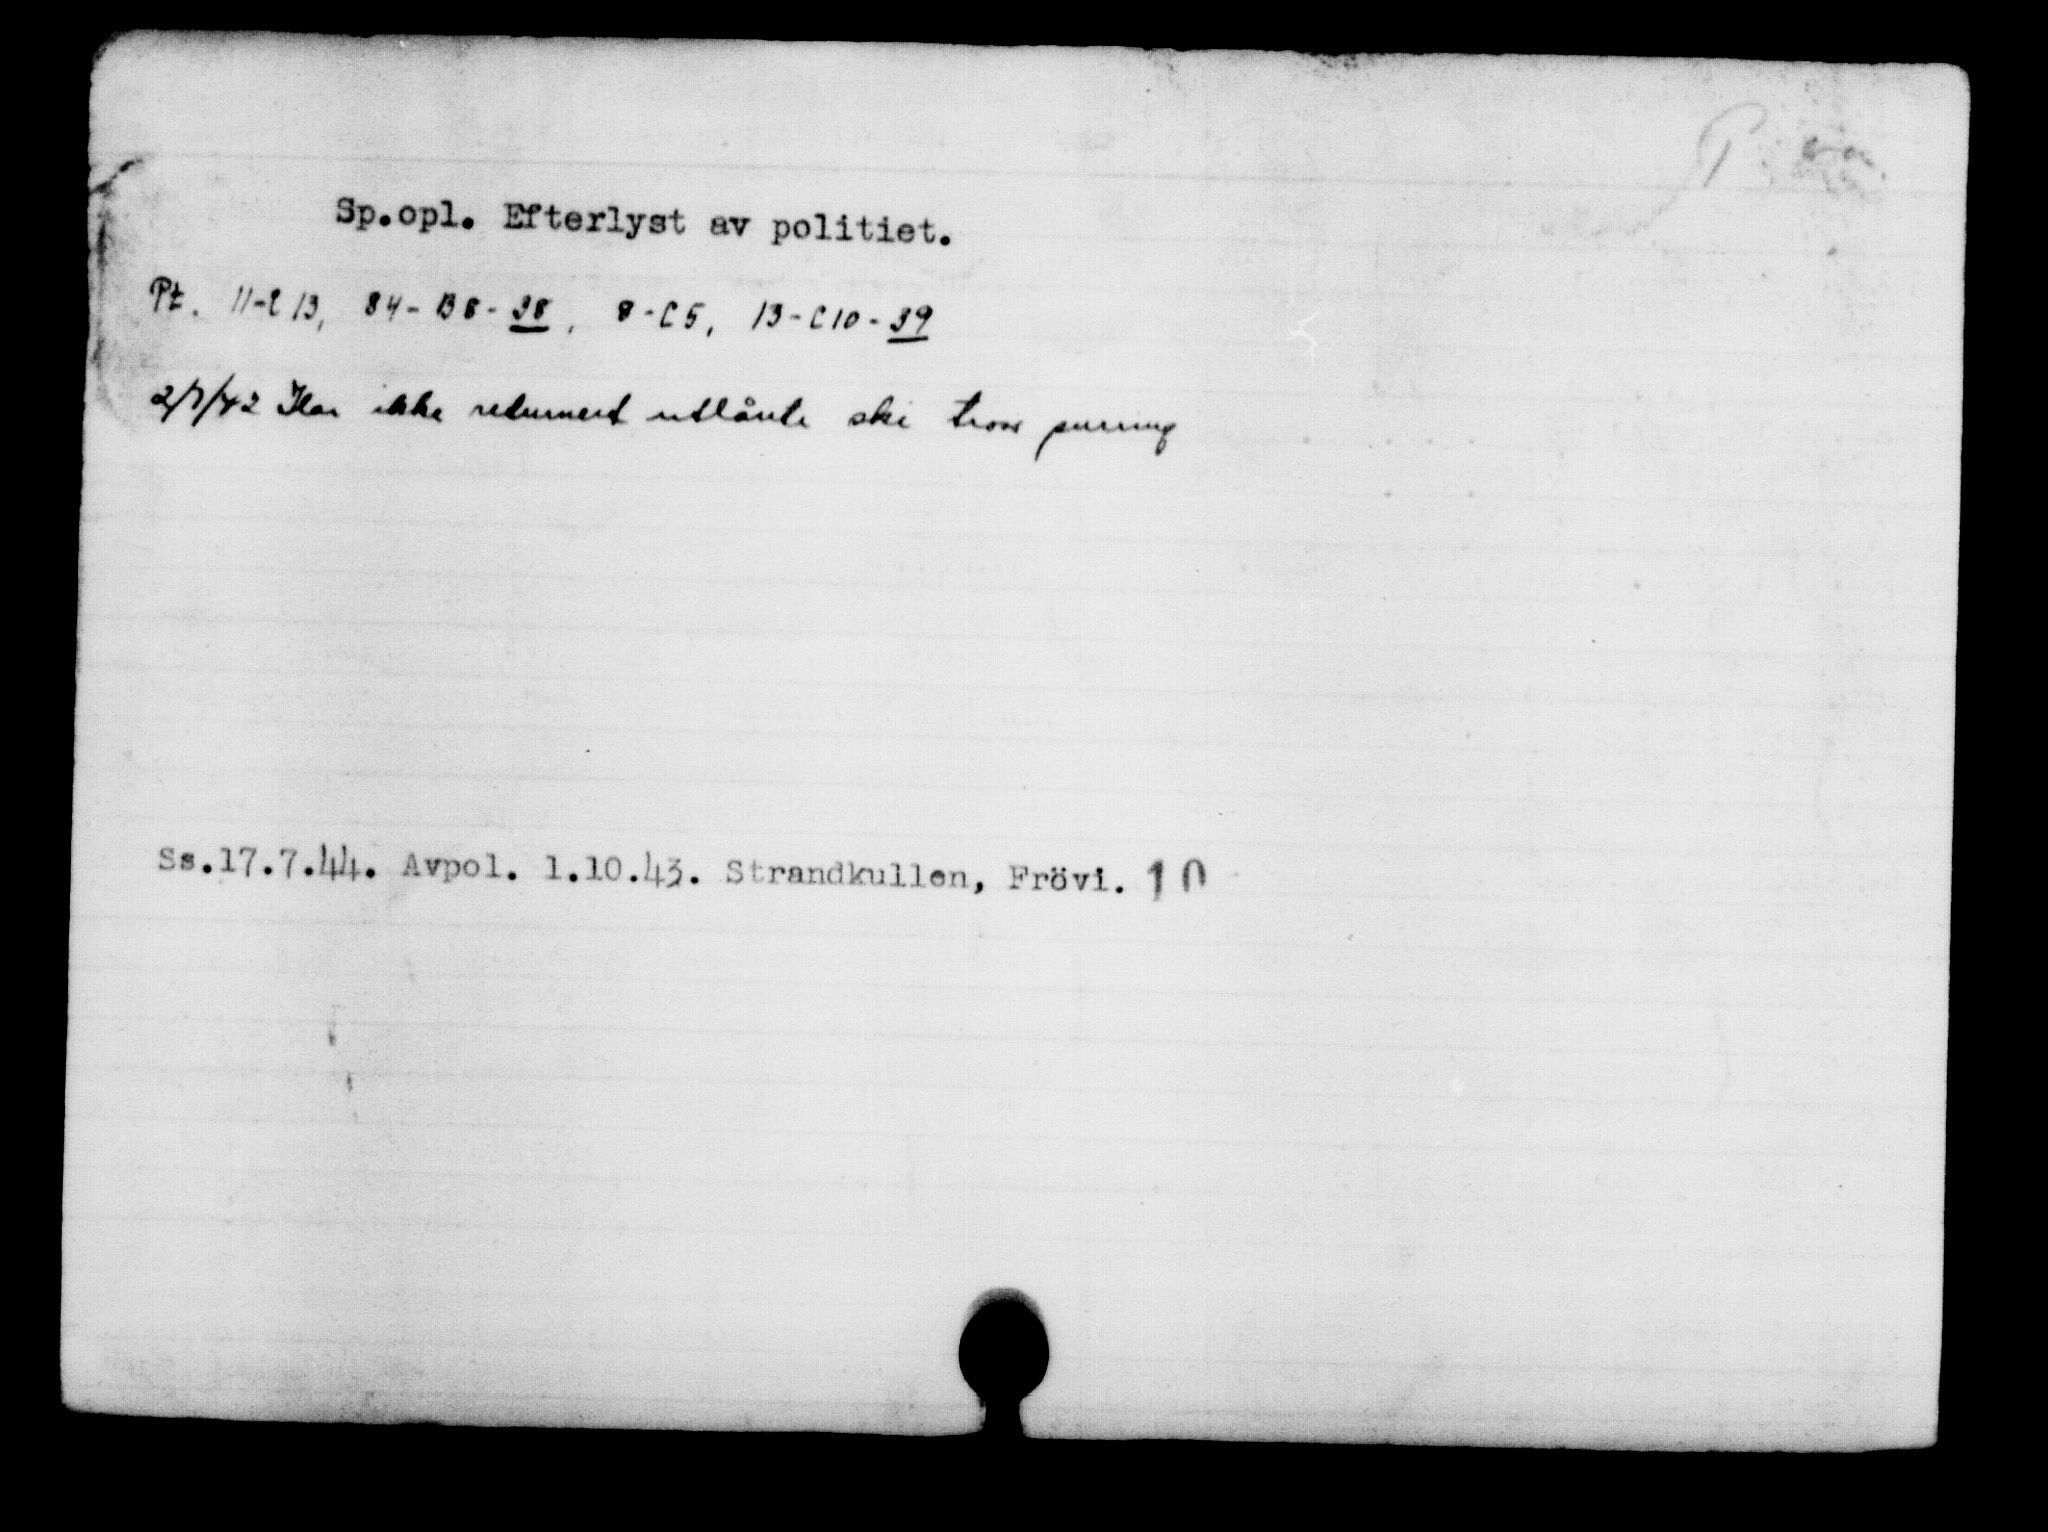 Sp.opl. Efterlyst av politiet.
Pt. 11-C 13, 84-B8-38, 8-C5, 13-C10-39
2/7/42 Har ikke returnert utlånte ski tross purring
Ss.17.7.44. Avpol. 1.10.43. Strandkullen, Frövi. 10